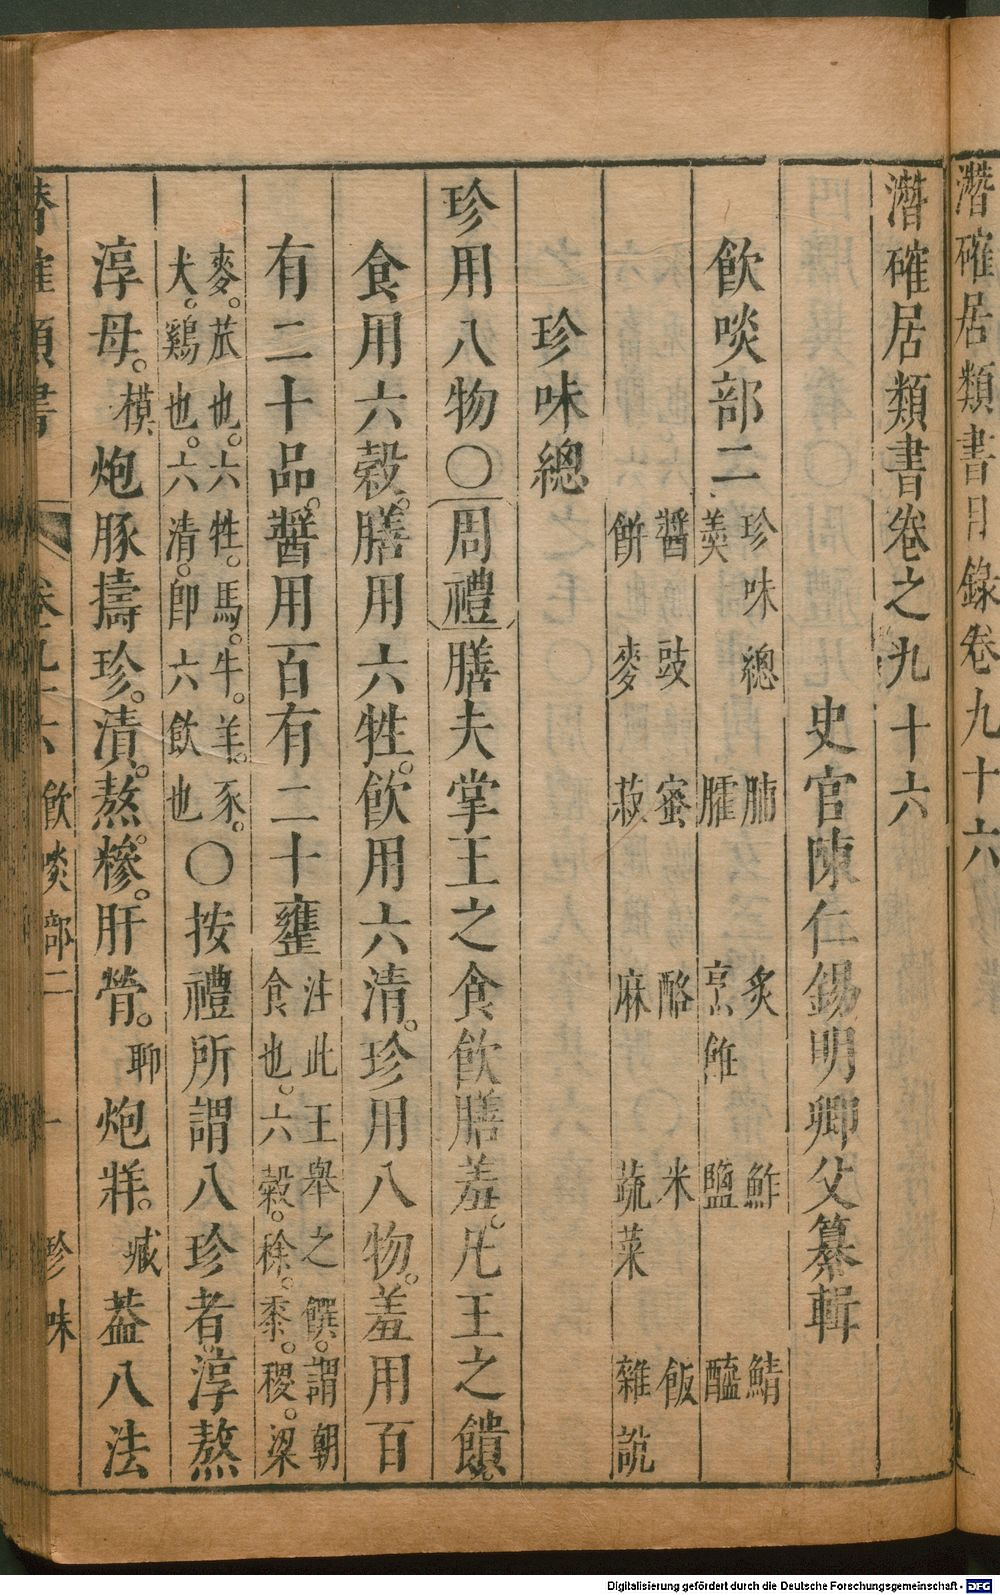 潛確居類書目錄卷九十六
潛確居類書卷之九十六
史官陳仁錫明卿父纂輯
飲啖部二
珍味總 腩 炙 鮓 鯖
羮 臛 烹飪 鹽 醯
醬 豉 蜜 酪 米 飯
餅 麥 菽 麻 蔬菜 雜說
珍味總
珍用八物〇周禮膳夫掌王之食飲膳羞。凡王之饋
食用六穀。膳用六牲。飲用六清。珍用八物。羞用百
有二十品。醬用百有二十罋
注此王舉之饌。謂朝
食也。六穀。稌。黍。稷。梁
麥。苽也。六牲。馬。牛。羊。豕。
犬。鷄也。六清。卽六飲也
〇按禮所謂八珍者。淳熬
淳母。模炮豚擣珍。漬。熬。糝。肝膋。聊炮牂。臧葢八法
潛確類書
卷九十六
飲啖部二
一
珍味
Digitalisierung gefördert durch die Deutsche Forschungsgemeinschaft - DFG